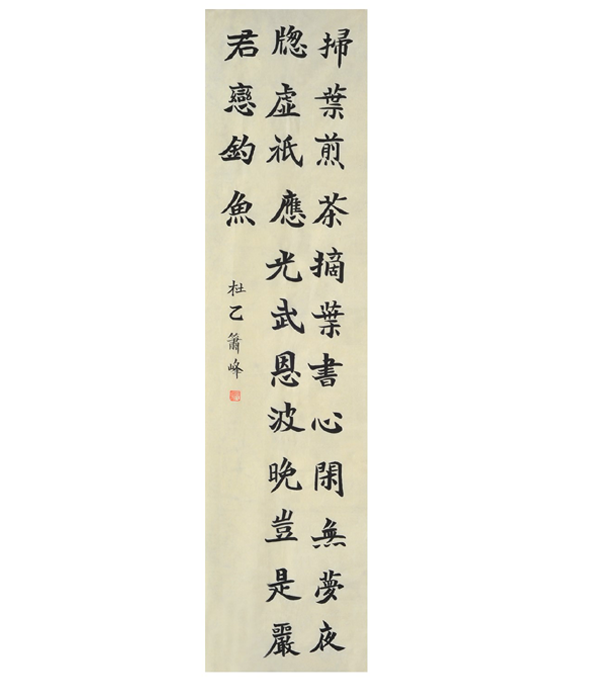 掃葉煎茶摘葉書心閑無夢夜
牕虛祇應光武恩波晚豈是嚴
君戀釣魚
杜乙簫峰